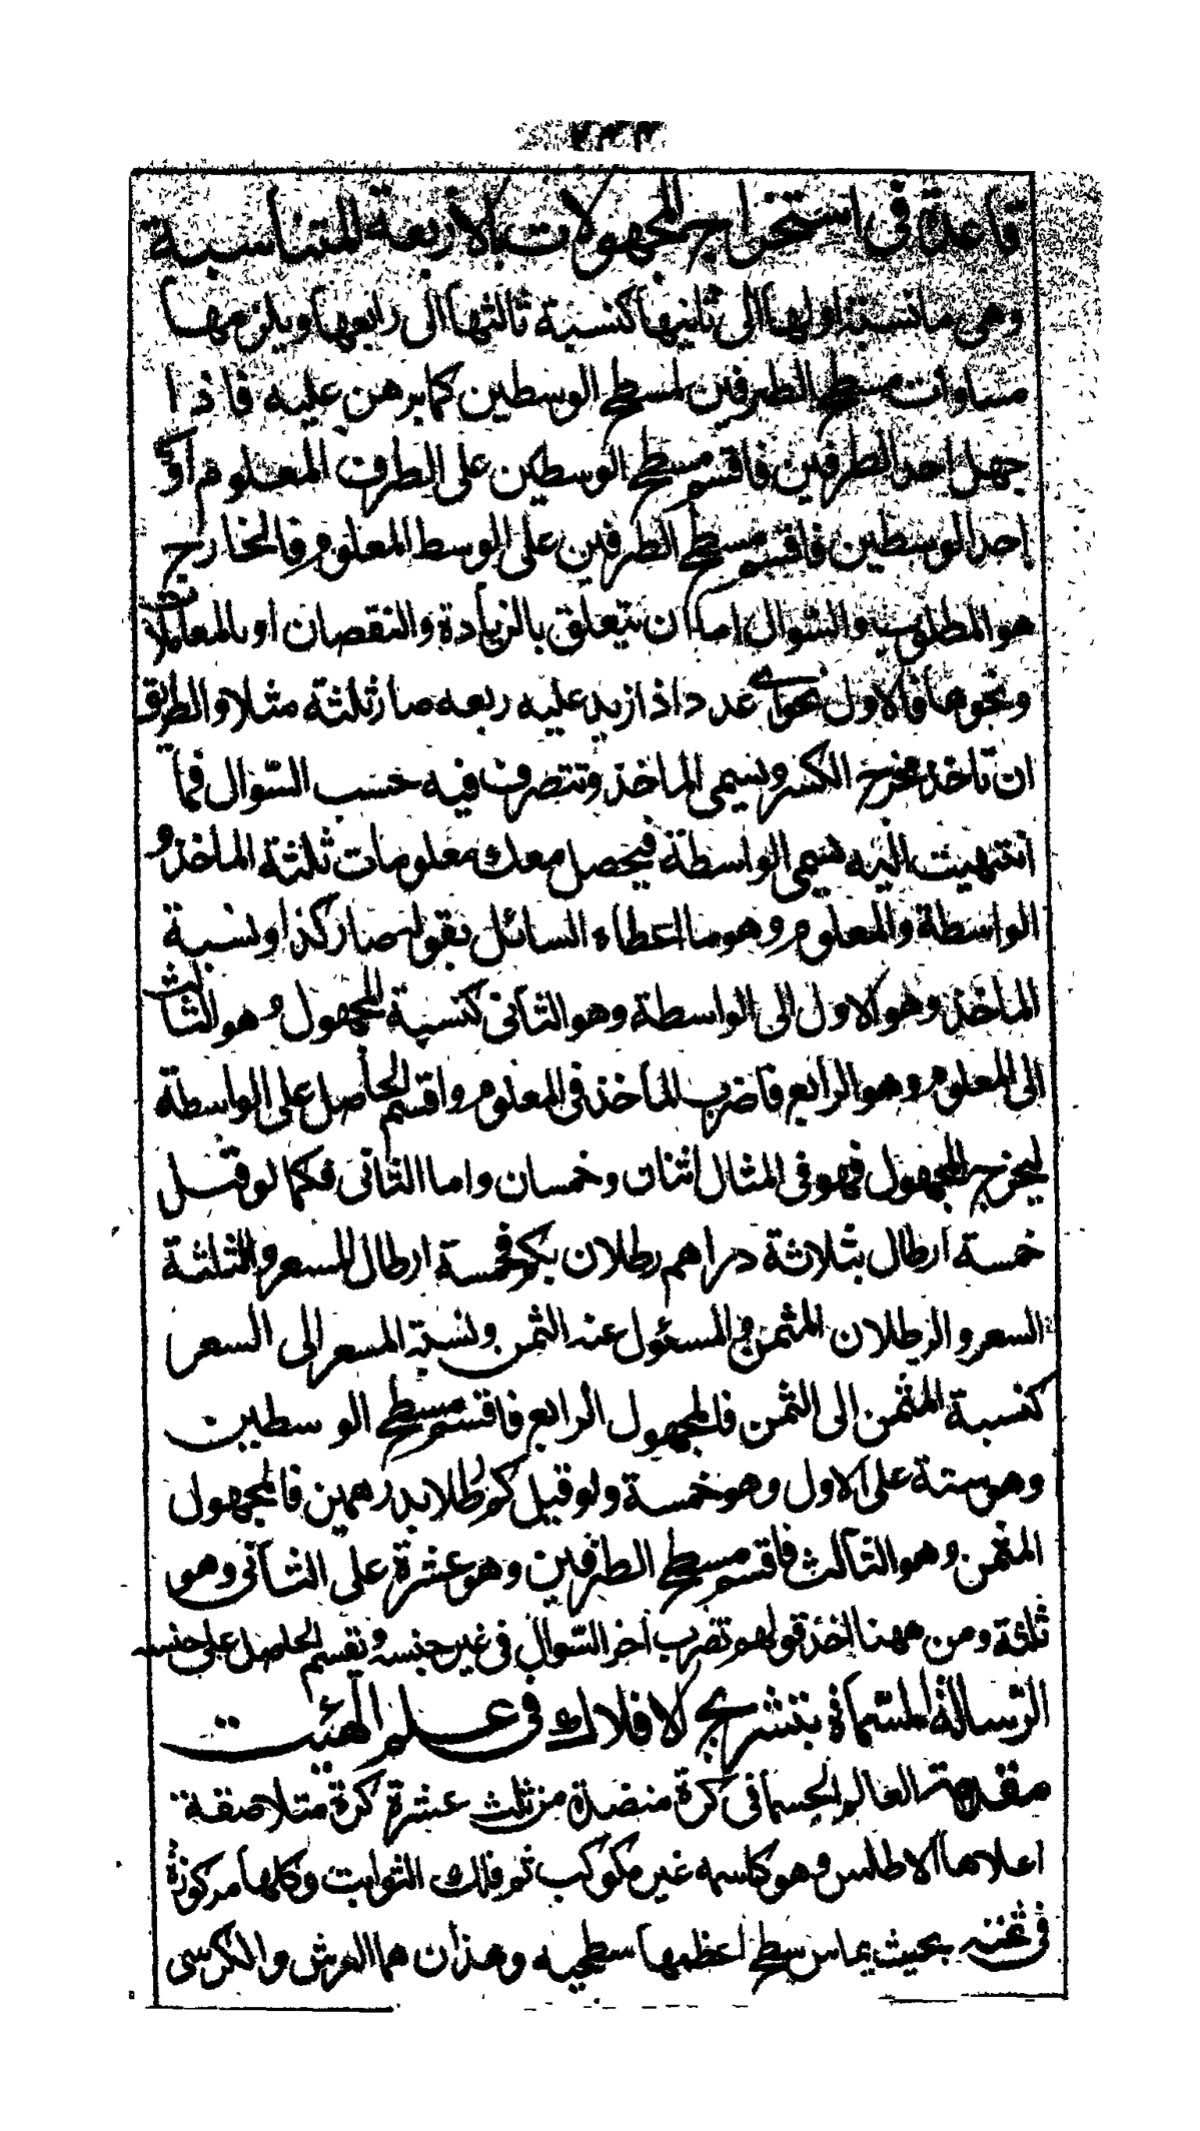 قاعدة في استخراج المجهولات بالأربعة المتناسبة
وهي ما نسبة اولها الى ثانيها كنسبة ثالثها الى رابعها ويلزمها
مساوات مسطح الطرفين لمسطح الوسطين كما برهن عليه فاذا
جهل احد الطرفين فاقسم مسطح الوسطين على الطرف المعلوم او
احد الوسطين فاقسم مسطح الطرفين على الوسط المعلوم فالخارج
هو المطلوب والسوال اما ان يتعلق بالزيادة والنقصان او بالمعاملات
ونحوها فالاول نحو اى عدد اذا زيد عليه ربعه صار ثلثة مثلا والطريق
ان تاخذ مخرج الكسر ويسمى الماخذ وتتصرف فيه حسب السّوال فما
انتهيت اليه يسمى الواسطة فيحصل معك معلومات ثلثة الماخذ و
الواسطة والمعلوم وهو ما اعطاه السائل بقوله صار كذا ونسبة
الماخذ وهو الاول الى الواسطة وهو الثانى كنسبة المجهول وهو الثالث
الى المعلوم وهو الرابع فاضرب الماخذ فى المعلوم واقسم الحاصل على الواسطة
ليخرج المجهول فهو فى المثال اثنان وخمسان واما الثانى فكما لو قيل
خمسة ارطال بثلاثة دراهم رطلان بكم فخمسة ارطال المسعر والثلثة
السعر والرطلان المثمن والمسئول عنه الثمن ونسبة المسعر الى السعر
كنسبة المثمن الى الثمن فالمجهول الرابع فاقسم مسطح الوسطين
وهو ستة على الاول وهو خمسة ولو قيل كم رطلا بدرهمين فالمجهول
المثمن وهو الثالث فاقسم مسطح الطرفين وهو عشرة على الثانى وهو
ثلثة ومن ههنا اخذ قولهم تضرب اخر السّوال فى غير جنسه وتقسم الحاصل على جنسه
الرّسالة المسّماة بتشريح الافلاك فى علم الهيئت
مقدمة العالم الجسمانى كرة منضدة من ثلث عشرة كرة متلاصقة
اعلاها الاطلس وهو كاسمه غير مكوكب ثم فلك الثوابت وكلها مركوزة
فى ثخنه بحيث يماس سطح اعظمها سطحيه وهذان هما العرش والكرسى